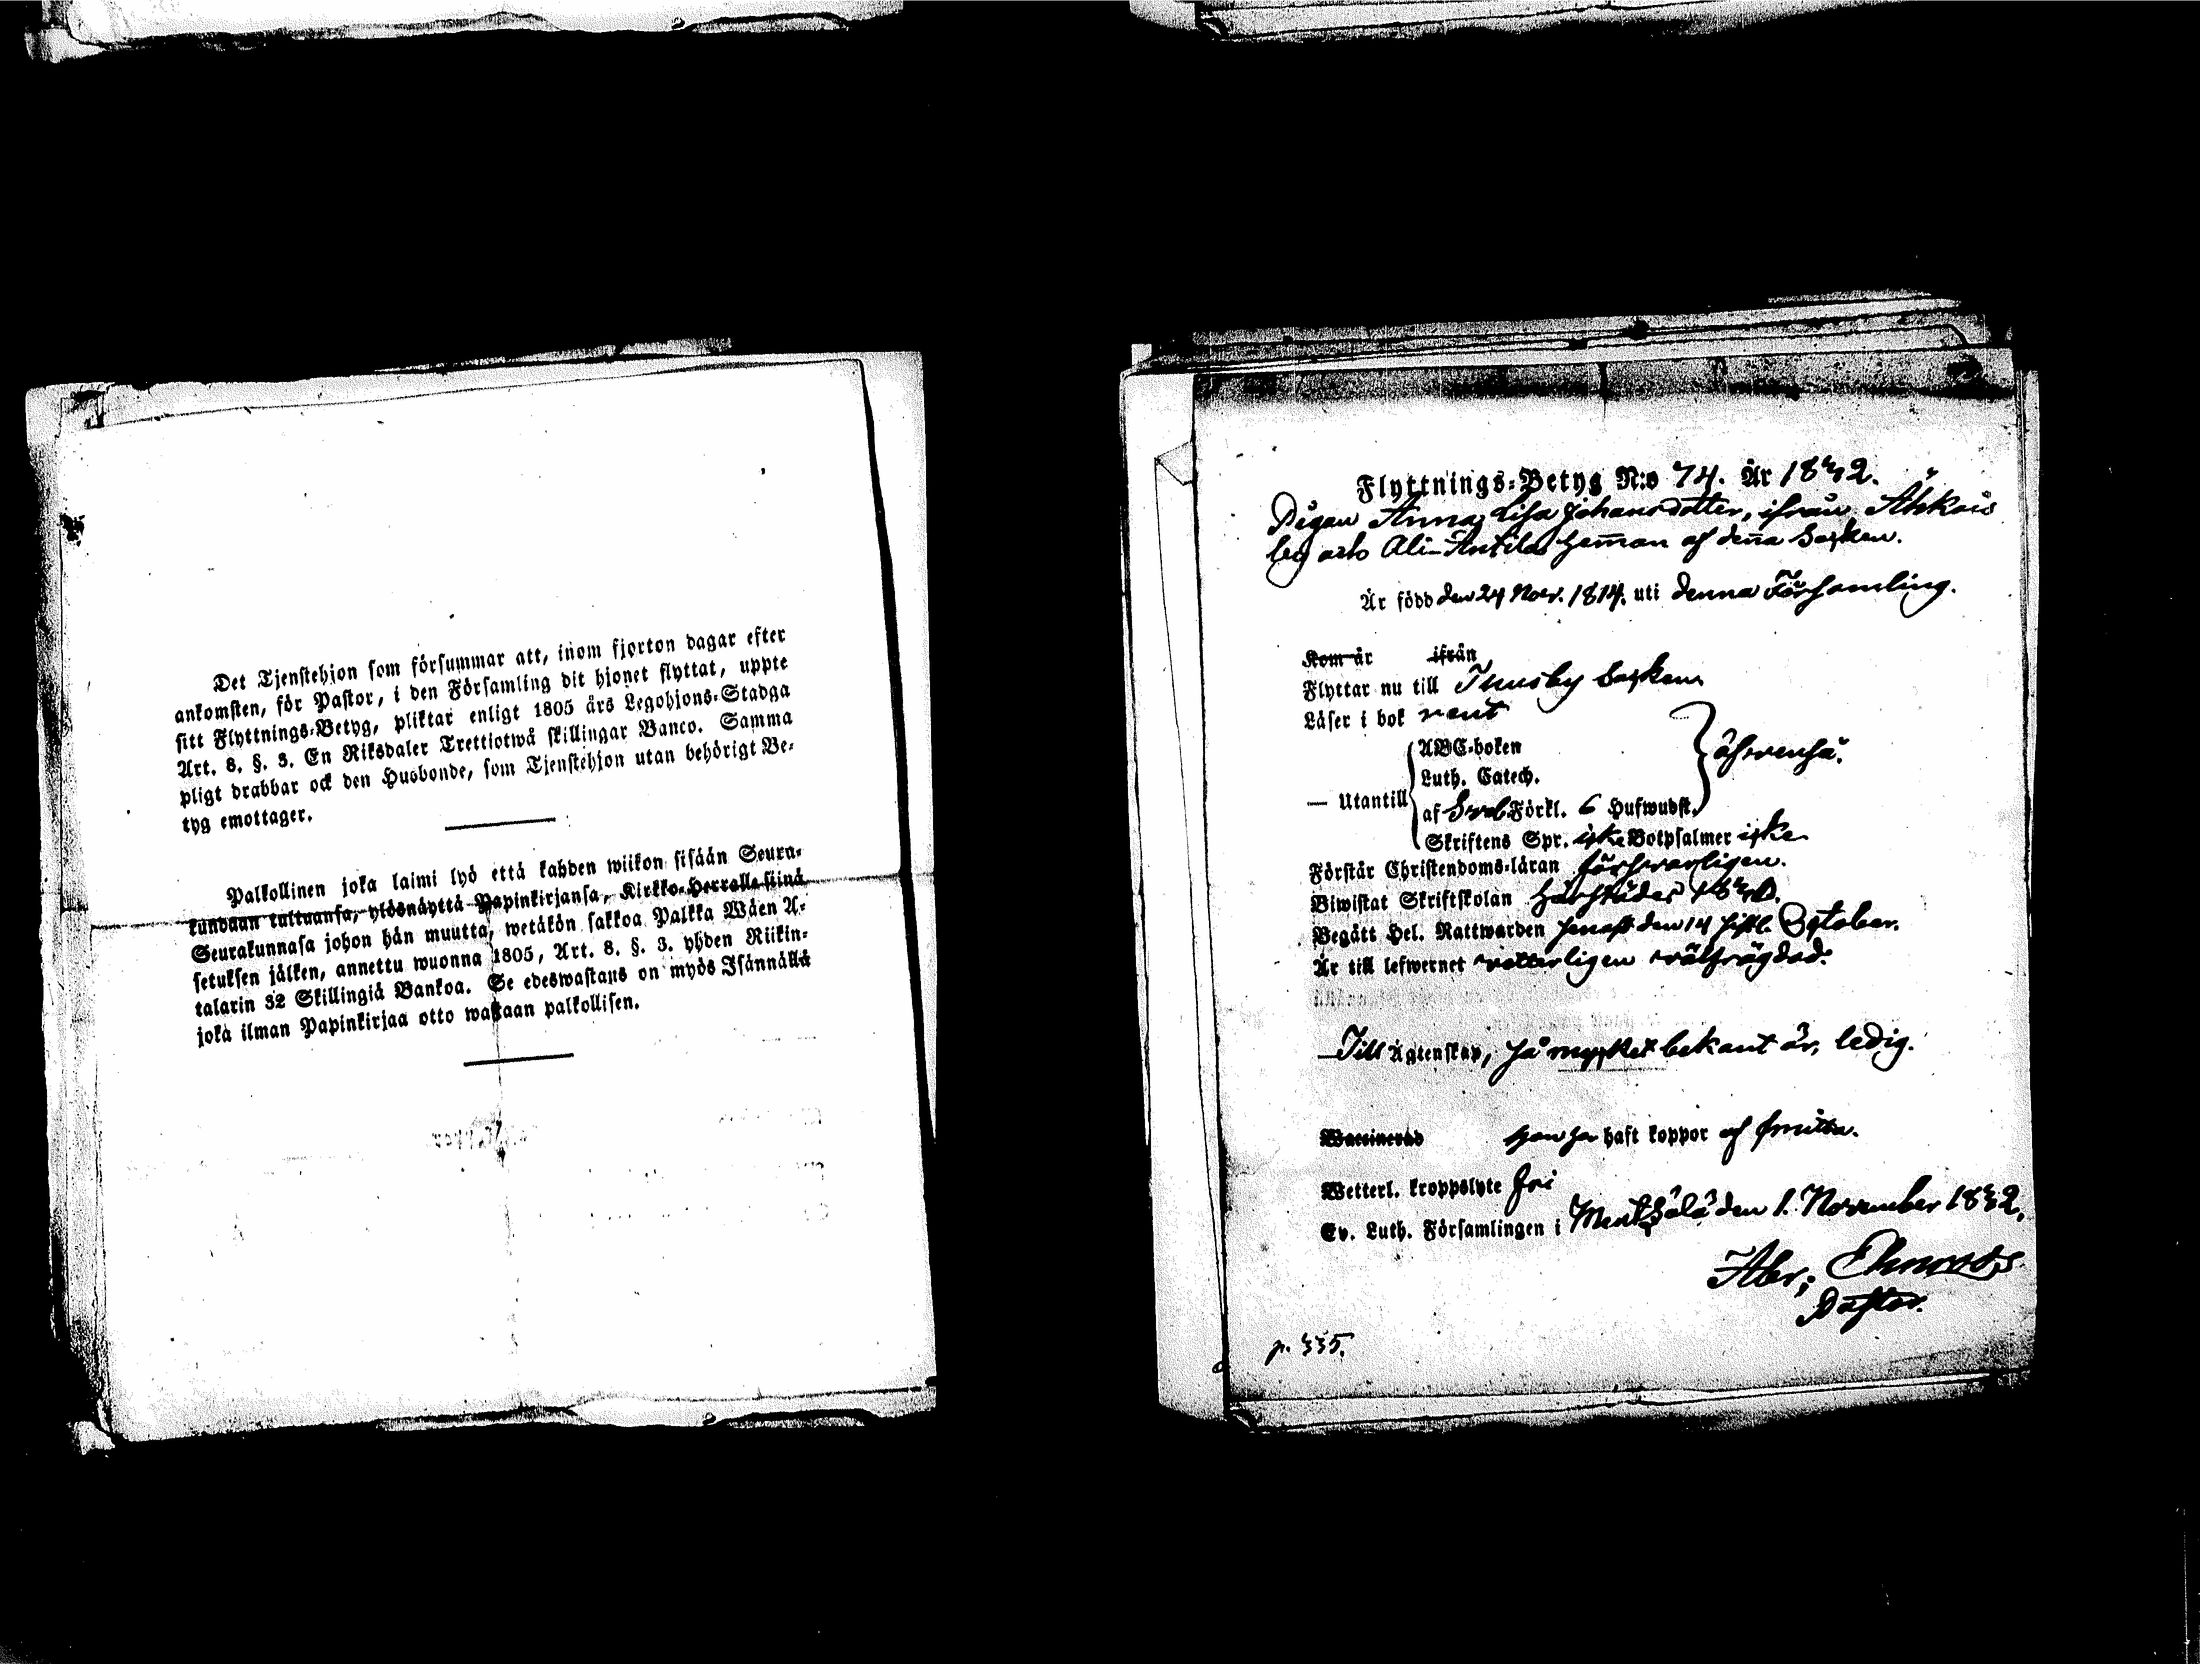 Det Tjenstehjon som försummar att, inom fjorton dagar efter
ankomsten, för Pastor, i den Församling dit hjonet flyttat, uppte
sitt Flyttnings-Betyg, pliktar enligt 1805 års Legohjons-Stadga
Art. 8. §. 3. En Riksdaler Trettiotwå skillingar Banco. Samma
pligt drabbar ock den Husbonde, som Tjenstehjon utan behörigt Be-
tyg emottager.
Palkollinen joka laimi lyö että kahden wiikon sisään Seura-
kundaan tultuansa, ylösnäyttä Papinkirjansa, Kirkko-Herralle siinä
Seurakunnasa johon hän muutta, wetäkön sakkoa Palkka Wäen A-
setuksen jälken, annettu wuonna 1805, Art. 8. §. 3. yhden Riikin-
talarin 32 Skillingiä Bankoa. Se edeswastaus on myös Isännällä
joka ilman Papinkirjaa otto wastaan palkollisen.
Flyttnings-Betyg N:o 74. År 1842.
Pigan Anna Lisa Johansdotter, ifrån
by och Ali-Anttila heman af denna Socken.
Är född den 24 Nov. 1814. uti denna Församling.
Kom år ifrån
Flyttar nu till Thusby Socken
Läser i bok rent
ABC-boken
Luth. Catech.
— Utantill
af Förkl. 6 Hufwudst.
Skriftens Spr. icke Botpsalmer icke
Förstår Christendoms-läran försvarligen.
Biwistat Skriftskolan härstädes 1840.
Begått Hel. Nattwarden senast den 14 sistl. October.
Är till lefwernet wetterligen välfrägdad.
Till Ägtenskap, så mycket bekant är, ledig.
Waccinerad Hon har haft koppor af smitta.
Wetterl. kroppslyte fri
Ev. Luth. Församlingen i Mentsälä den 1. November 1842.
Abr.
Pastor.
p. 335.